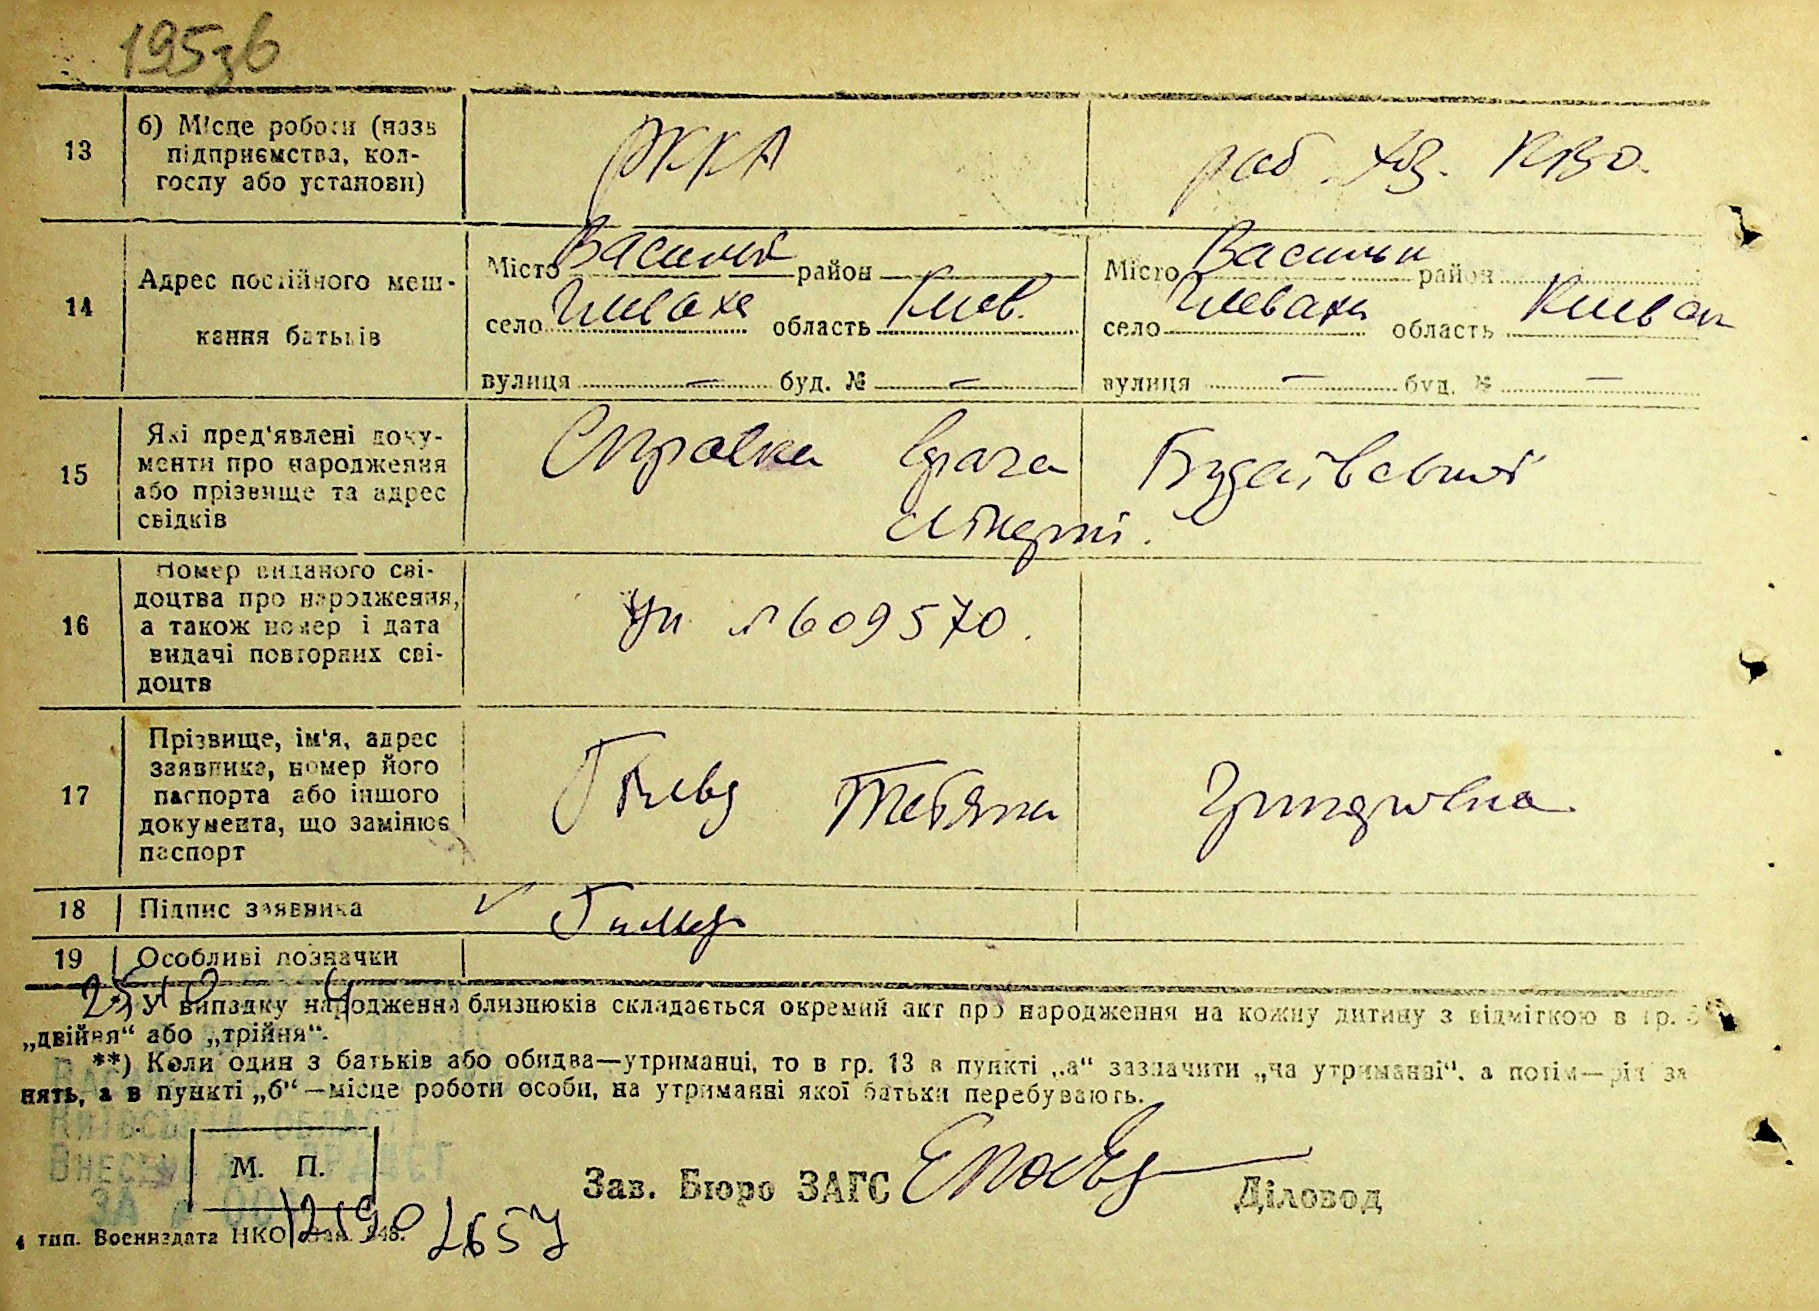 195зб
13 б) Місце роботи (назв підприємства, колгоспу або установи) РККА раб. хоз. КВО.
14 Адрес постійного мешкання батьків
Місто Васильк район — Місто Васильк район
село Глеваха область Киев. село Глевахи область Киевск
вулиця — буд. № — вулиця — буд. № —
15 Які пред'явлені документи про народження або прізвище та адрес свідків Справка врача Будаївської
лікарні.
16 Номер виданого свідоцтва про народження, а також номер і дата видачі повторних свідоцтв Ун № 609570.
17 Прізвище, ім'я, адрес заявника, номер його паспорта або іншого документа, що замінює паспорт Татьяна
18 Підпис заявника
19 Особливі позначки
*) У випадку народження близнюків складається окремий акт про народження на кожну дитину з відміткою в гр. 3
„двійня“ або „трійня“.
**) Коли один з батьків або обидва—утриманці, то в гр. 13 в пункті „а“ зазначити „на утриманні“, а потім—рід за
нять, а в пункті „б“—місце роботи особи, на утриманні якої батьки перебувають.
М. П.
Зав. Бюро ЗАГС Діловод
4 тип. Воениздата НКО Зак. 248.
2657